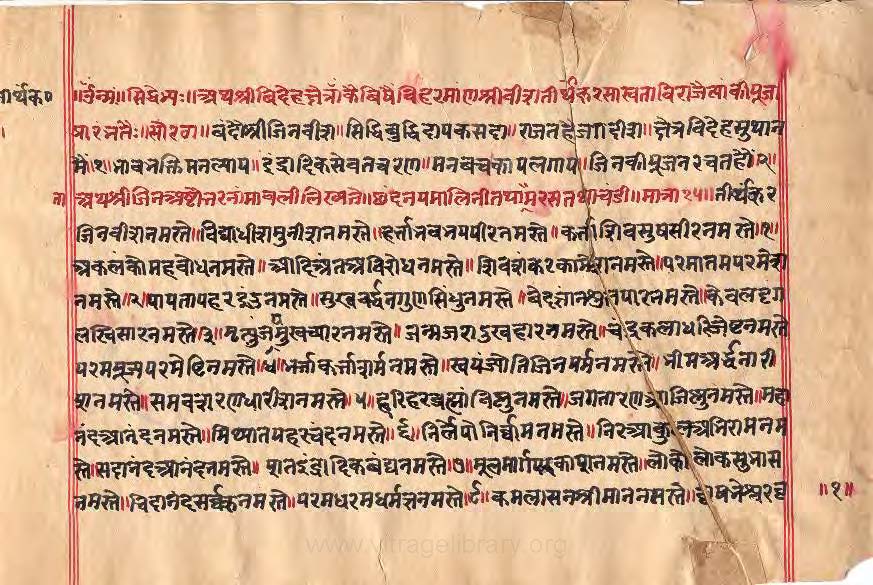 ॥उँनमः॥सिद्धेभ्यः॥अथश्रीविदेहक्षेत्रांकैविषैविहरमांणश्रीवीशतीर्थंकरसाखताविराजैत्यांकीपूजा
प्रारभतैः॥सोरठा॥वंदौश्रीजिनवीश॥सिद्धिबुद्धिदायकसदा॥राजतहैजगदीश॥क्षेत्रविदेहसुथान
मै॥१॥भावभक्तिमनल्याय॥इंद्रादिकसेवतचरण॥मनवचकायलगाय॥जिनकीपूजनरचतहौं॥२॥
अथश्रीजिनअष्टोत्तरनांमावलीलिख्यते॥छंद मात्रा१५॥तीर्थंकर
जिनवीशनमस्ते॥विद्याधीशमुनीशनमस्ते॥हर्त्ताभवभयपीरनमस्ते॥कर्त्ताशिवसुषसीरनमस्ते॥१॥
अकलंकोमहबोधनमस्ते॥आदिअंतअविरोधनमस्ते॥शिवशंकरकामेशनमस्ते॥परमातमपरमेश
नमस्ते॥२॥पापतापहरइंदुनमस्ते॥सुखवर्द्धनगुणसिंधुनमस्ते॥वेदज्ञानश्रुतपारनमस्ते॥केवलदृग
लखिसारनमस्ते॥३॥मृत्युंजैमुखच्यारनमस्ते॥जन्मजराऽखहारनमस्ते॥चंद्रकलाधर नमस्ते
परमपूज्यपरमेष्टिनमस्ते॥४॥भर्त्ताकर्त्ताशर्मनमस्ते॥स्वयंजोतिजिनधर्मनमस्ते॥श्रीमअर्द्धनारी
शनमस्ते॥समवशरणधारीशनमस्ते॥५॥हरिहरब्रह्माविष्नुनमस्ते॥जगतारण जिष्नुनमस्ते॥महा
नंदआनंदनमस्ते॥मिथ्यातपहरचंदनमस्ते॥६॥निर्लेपोनिर्द्धामनमस्ते॥निरआकुलअभिरामनम
स्ते॥सदानंदआनंदनमस्ते॥शतइंद्रादिकवंद्यनमस्ते॥७॥मूलमार्गपरकाशनमस्ते॥लोकालोकसुभास
नमस्ते॥चिदानंद नमस्ते॥परमधरमधर्मज्ञनमस्ते॥८॥कमलासनश्रीमाननमस्ते॥
तीर्थक०
॥१॥
www.vitragelibrary.org